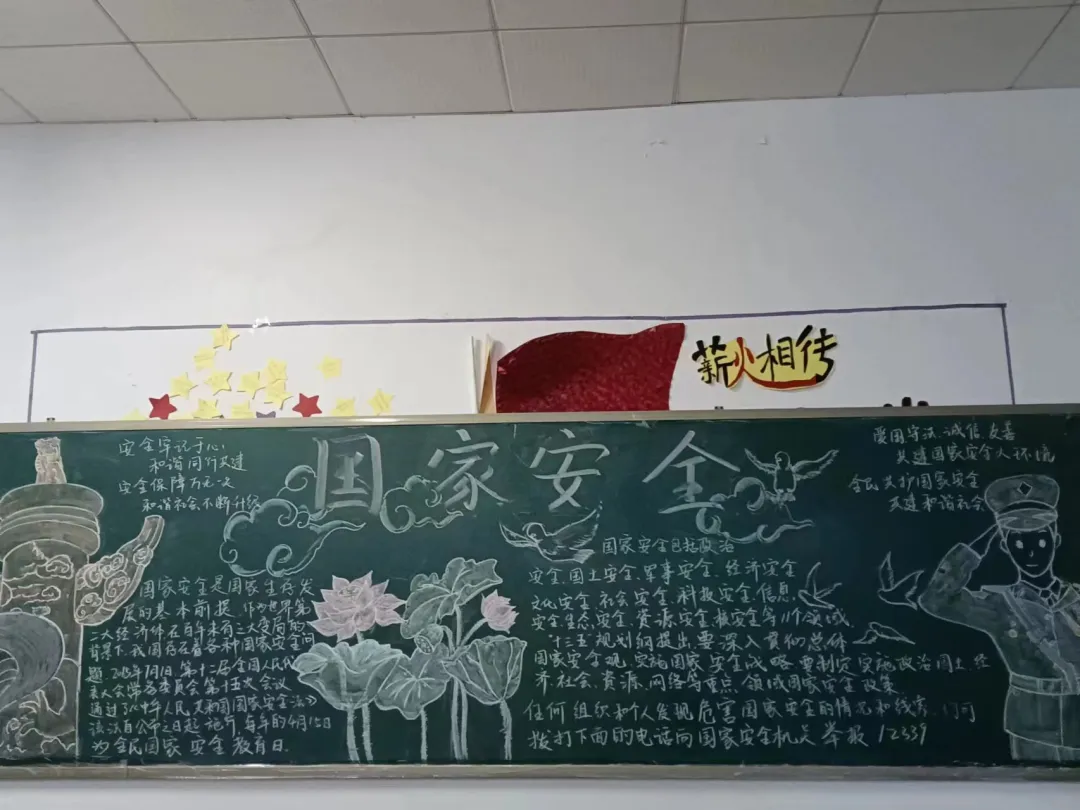 薪火相传
国家安全
安全牢记于心
和谐同行共建
安全保障万无一失
和谐社会不断升级
爱国守法、诚信友善
共建国家安全人环境
全民共护国家安全
共建和谐社会
国家安全是国家生存发
展的基本前提。作为世界第
二大经济体在百年未有之大变局的
背景下,我国存在着各种国家安全问
题。7月1日,第十二届全国人民代
表大会常务委员会第十五次会议
通过了《中华人民共和国国家安全法》
该法自公布之日起施行,每年的4月15日
为全民国家安全教育日.
国家安全包括政治
安全、国土安全、军事安全、经济安全
文化安全、社会安全、科技安全、信息
安全、生态安全、资源安全、核安全等11个领域,
"十三五"规划纲提出,要深入贯彻总体
国家安全观,实施国家安全战略,要制定实施政治、国土、经
济、社会、资源、网络等重点领域国家安全政策
任何组织和个人发现危害国家安全的情况和线索,门可
拨打下面的电话向国家安全机关举报12339